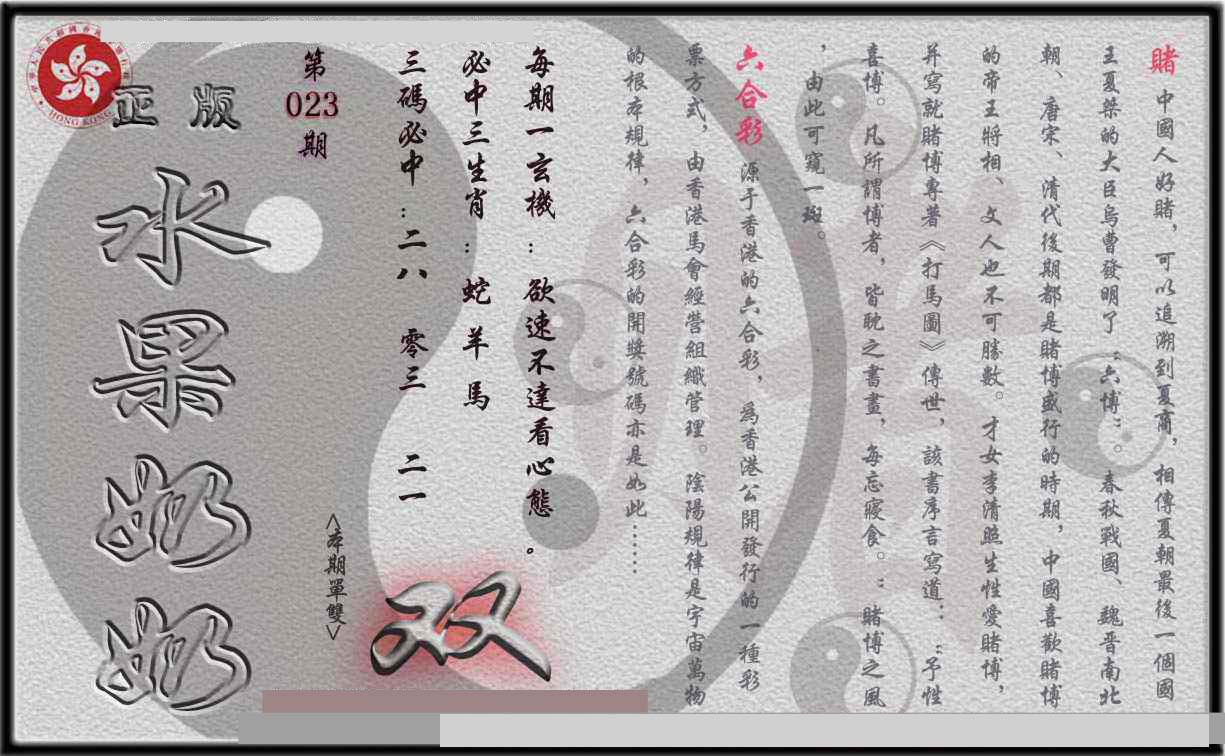 賭 中國人好賭，可以追溯到夏商，相傳夏朝最後一個國
王夏桀的大臣烏曹發明了“六博”。春秋戰國、魏晋南北
朝、唐宋、清代後期都是賭博盛行的時期，中國喜歡賭博
的帝王將相、文人也不可勝數。才女李清照生性愛賭博，
并寫就賭博專著《打馬圖》傳世，該書序言寫道：“予性
喜博。凡所謂博者，皆耽之書畫，每忘寢食。”賭博之風
，由此可窺一斑。
六合彩 源于香港的六合彩，爲香港公開發行的一種彩
票方式，由香港馬會經營組織管理。陰陽規律是宇宙萬物
的根本規律，六合彩的開獎號碼亦是如此……
每期一玄機：欲速不達看心態。
必中三生肖：蛇 羊 馬
三碼必中：二八 零三 二一
<本期單雙>
双
第
023
期
正版
水果奶奶
HONG KONG